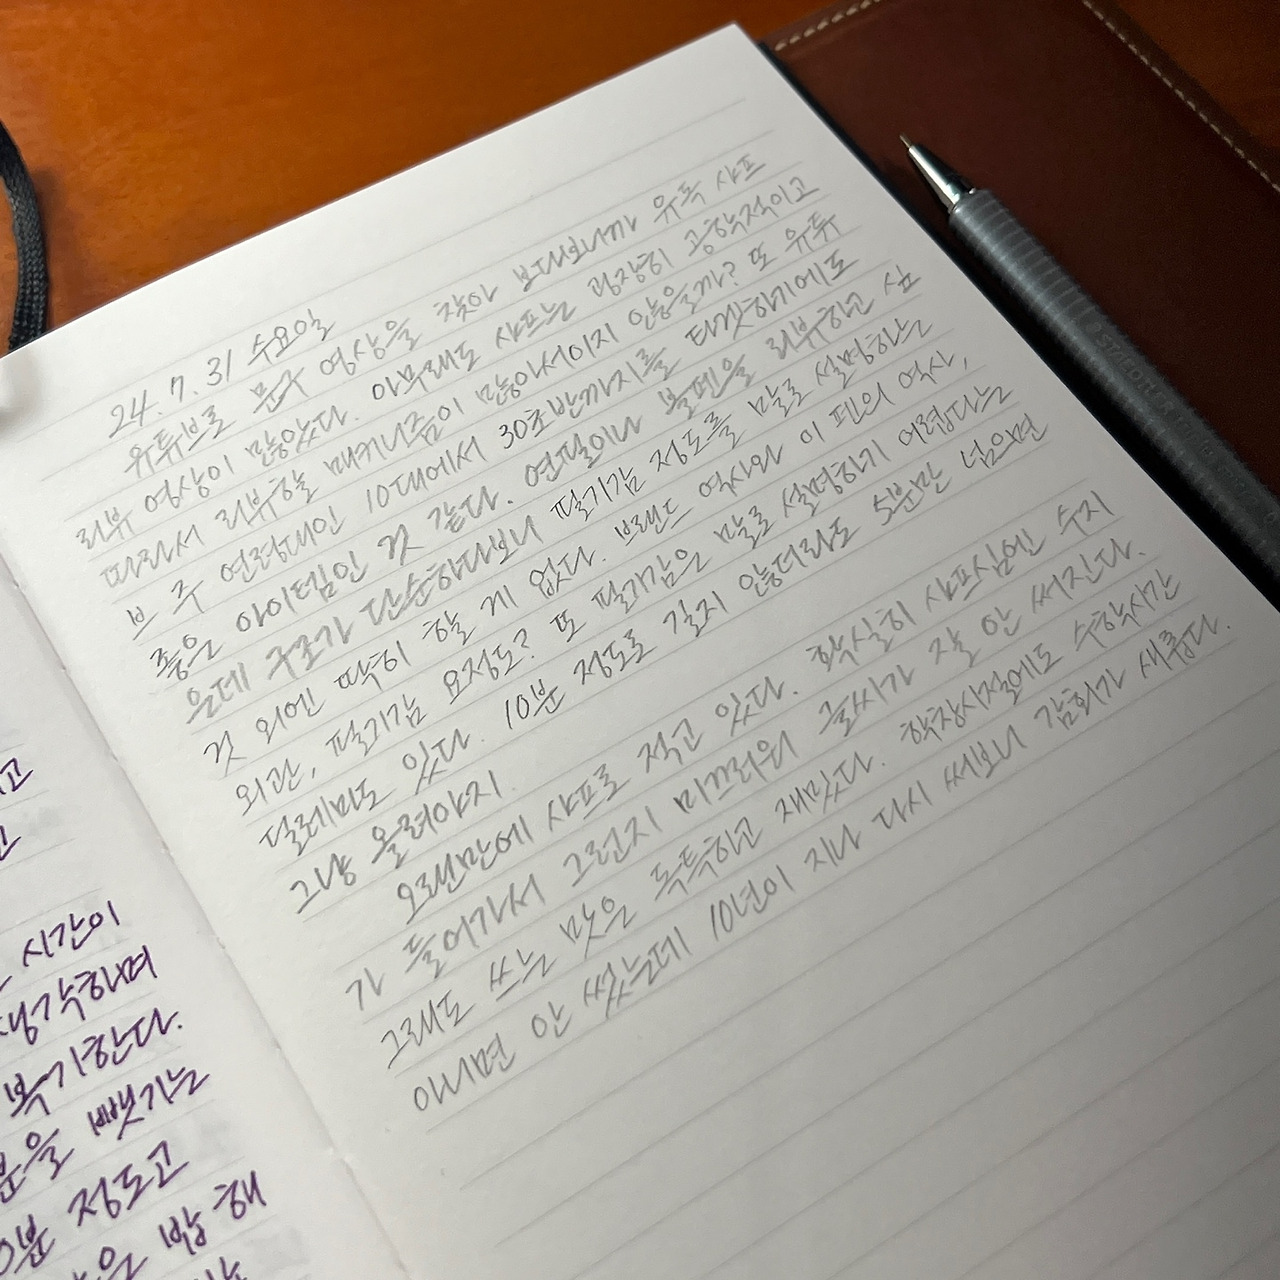 24. 7. 31 수요일
유튜브로 문구 영상을 찾아 보다보니까 유독 샤프
리뷰 영상이 많았다. 아무래도 샤프는 굉장히 공학적이고
따라서 리뷰할 매커니즘이 많아서이지 않을까? 또 유튜
브 주 연령대인 10대에서 30초반까지를 타겟하기에도
좋은 아이템인 것 같다. 연필이나 볼펜을 리뷰하고 싶
을데 구조가 단순하다보니 필기감 정도를 말로 설명하는
것 외엔 딱히 할 게 없다. 브랜드 역사와 이 펜의 역사,
외관, 필기감 요정도? 또 필기감은 말로 설명하기 어렵다는
딜레마도 있다. 10분 정도로 길지 않더라도 5분만 넘으면
그냥 올려야지.
오랜만에 샤프로 적고 있다. 확실히 샤프심엔 수지
가 들어가서 그런지 미끄러워 글씨가 잘 안 써진다.
그래도 쓰는 맛은 독특하고 재밌다. 학창시절에도 수학시간
아니면 안 썼는데 10년이 지나 다시 써보니 감회가 새롭다.
고
시간이
생각하며
복기한다.
분을 뺏기는
0분 정도고
은 밤 해
STAEDTLER